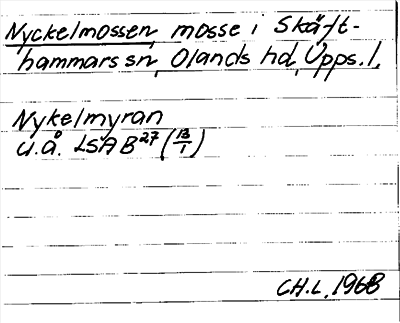 Nyckelmossen, mosse i Skäft-
hammars sn, Olands hd, Upps. l.
Nykelmyran
u.å. LSA B27 (13/1)
CH.L. 1968